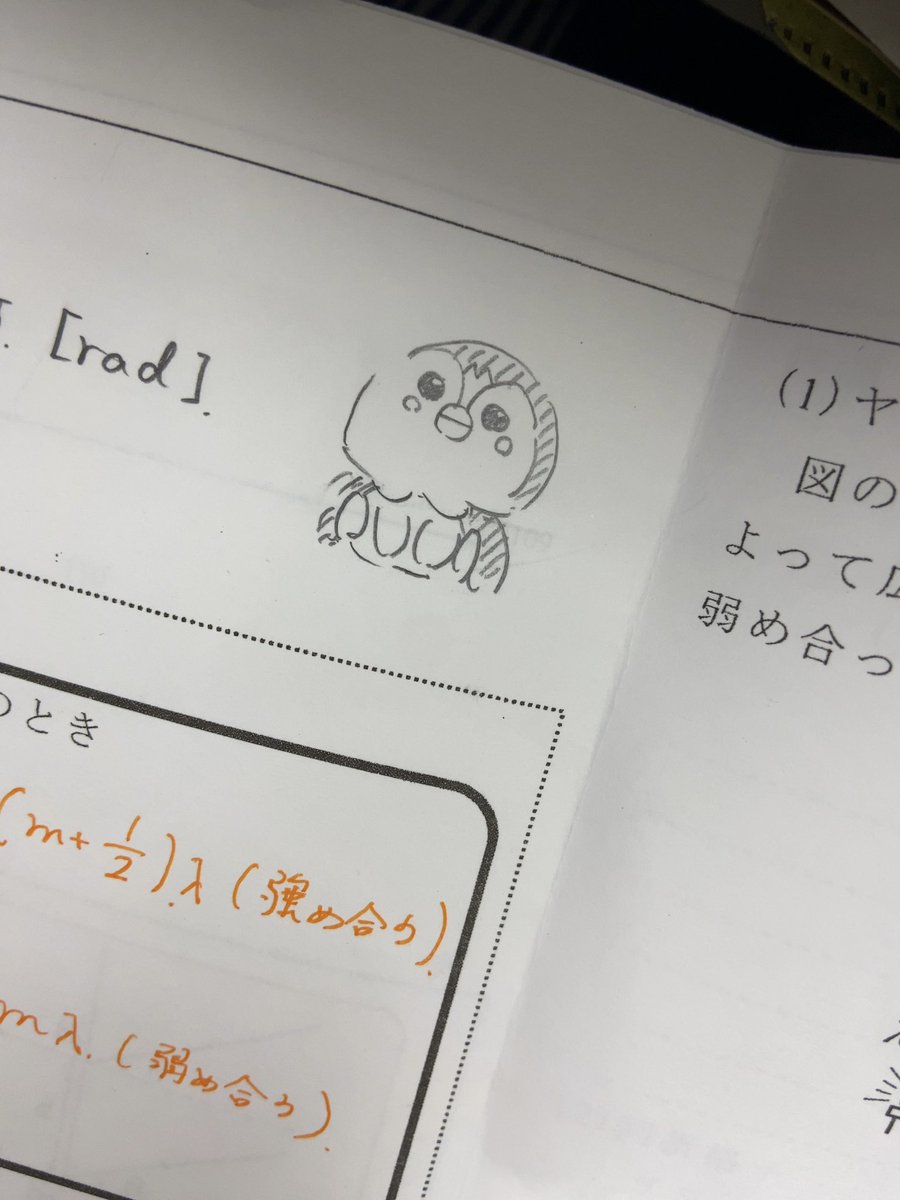 [rad].
のとき
(m+1/2)λ (強め合う).
mλ. (弱め合う).
(1) ヤ
図の
よって広
弱め合っ